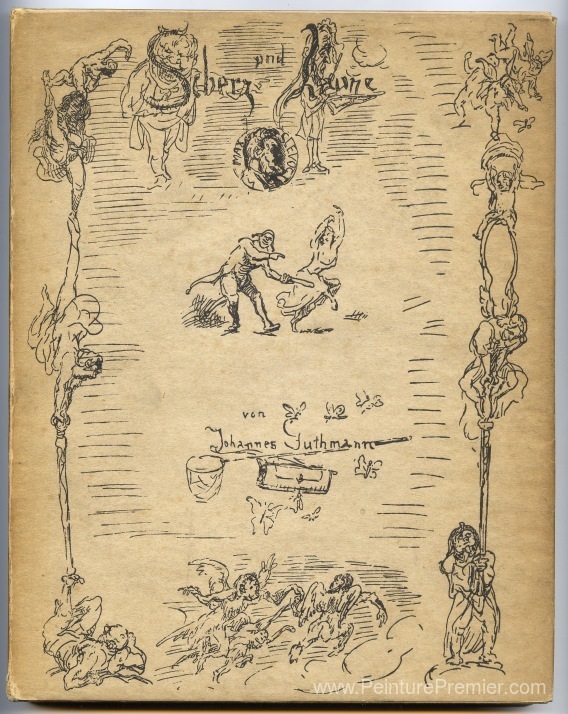 Scherz und Laune
von
Johannes Guthmann
www.PeinturePremier.com